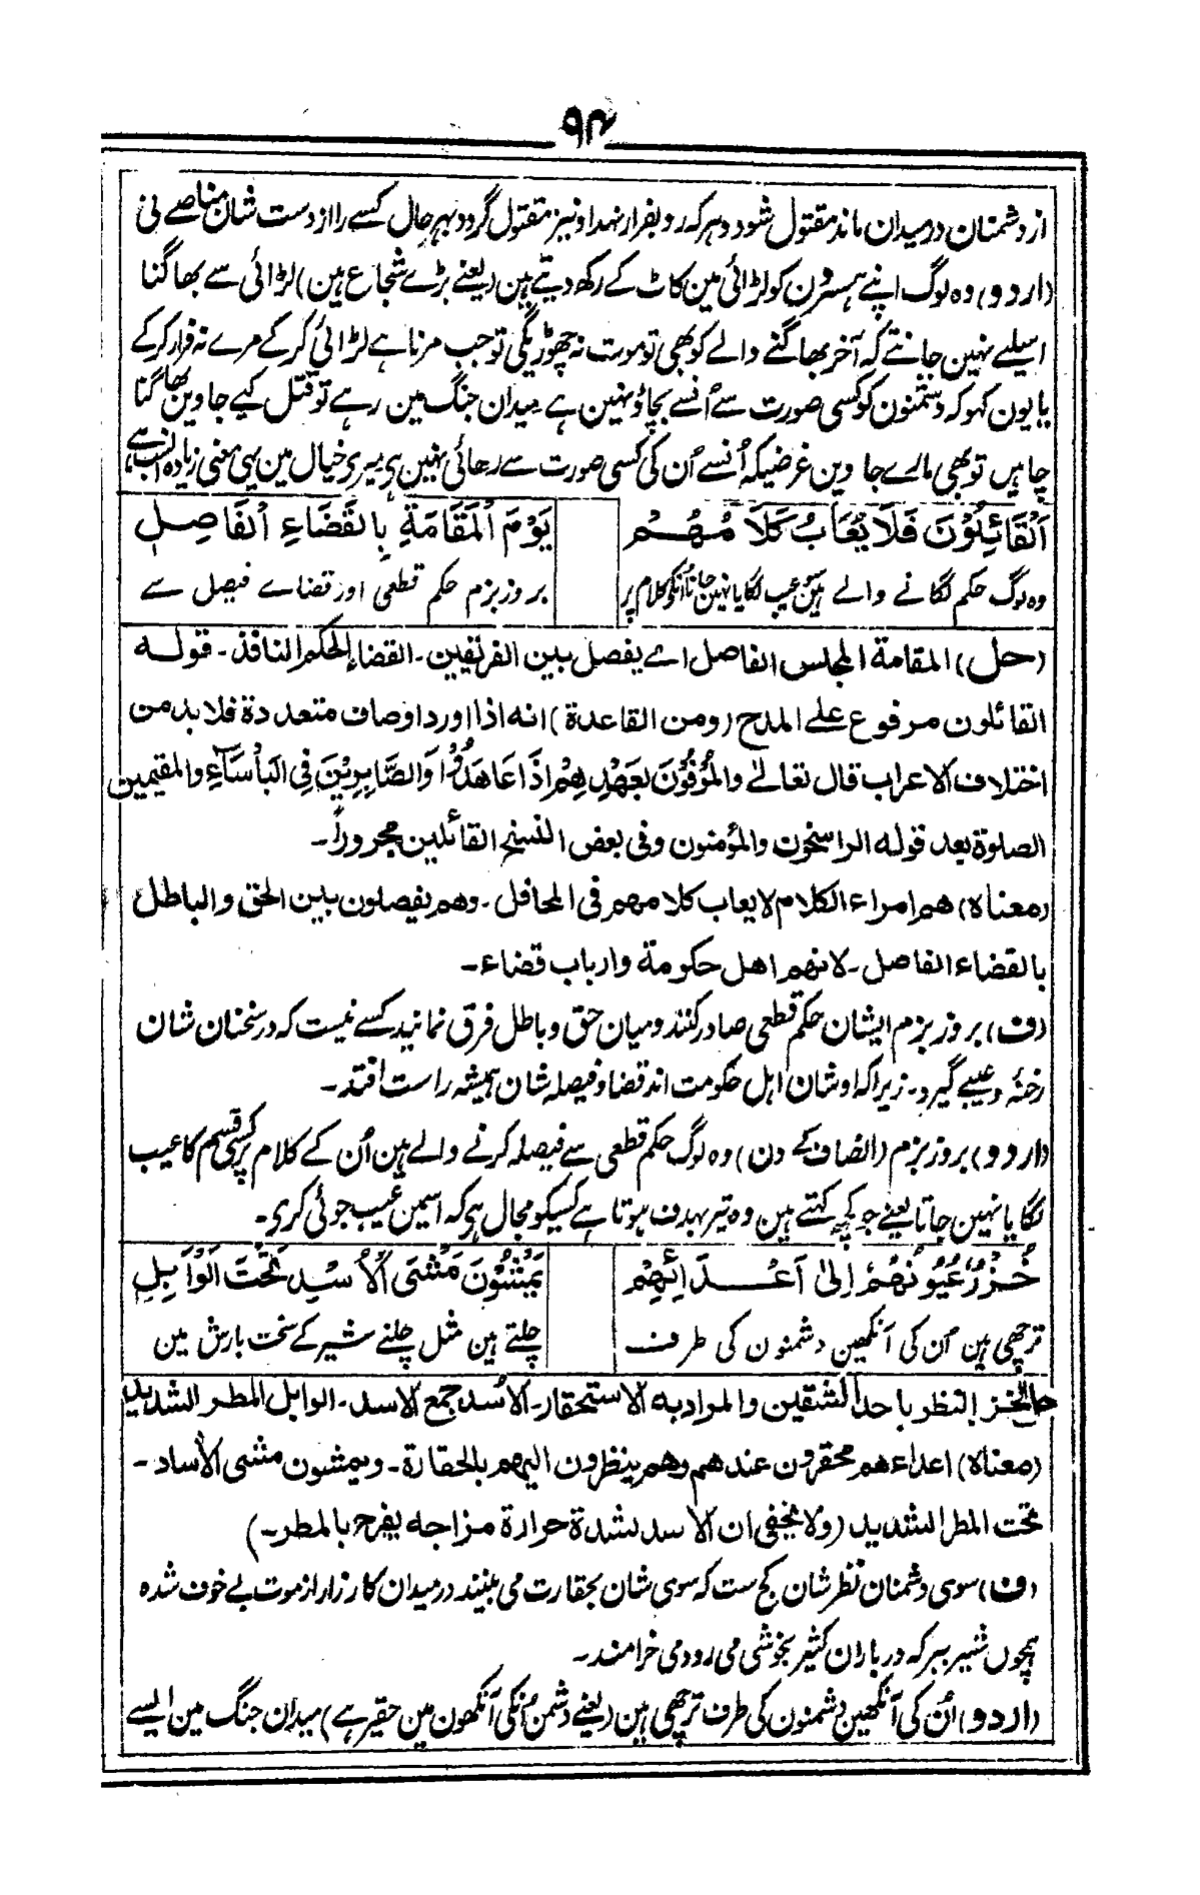 ۹۴
از دشمنان در میدان ماند مقتول شود و ہر کہ رو بفرار نہد او نیز مقتول گردد بہر حال کسے را از دست شان مناصے نی
(اردو) وہ لوگ اپنے ہمسرون کو لڑائی مین کاٹ کے رکھ دیتے ہین (یعنے بڑے شجاع ہین) لڑائی سے بھاگنا
اسلیے نہین جانتے کہ آخر بھاگنے والے کو بھی تو موت نہ چھوڑیگی تو جب مرنا ہے لڑائی کر کے مرے نہ فرار کر کے
یا یون کہو کہ دشمنون کو کسی صورت سے اُنسے بچاؤ نہین ہے میدان جنگ مین رہے تو قتل کیے جاوین بھاگنا
چاہین تو بھی مارے جاوین غرضیکہ اُنسے اُن کی کسی صورت سے رہائی نہین ہی میری خیال مین یہی معنی زیادہ انسب ہے
اَلْقَائِلُوْنَ فَلَا يُعَابُ كَلَامُهُمْ يَوْمَ الْمَقَامَةِ بِالْقَضَاءِ الْفَاصِلِ
وہ لوگ حکم لگانے والے ہین عیب لگایا نہین جاتا اُنکو کلام پر بروز بزم حکم قطعی اور قضاے فیصل سے
(حل) المقامة المجلس الفاصل اے يفصل بين الفريقين۔ القضاء الحكم النافذ۔ قوله
القائلون مرفوع على المدح (ومن القاعدة) انه اذا اورد اوصاف متعددة فلا بد من
اختلاف الاعراب قال تعالىٰ والْمُوْفُوْنَ بِعَهْدِهِمْ اِذَا عَاهَدُوْا وَالصَّابِرِيْنَ فِي الْبَأْسَاءِ والمقيمين
الصلوة بعد قوله الراسخون والمؤمنون وفى بعض النسخ القائلين مجروراً۔
(معناه) هم امراء الكلام لا يعاب كلامهم فى المحافل۔ وهم يفصلون بين الحق والباطل
بالقضاء الفاصل۔ لانهم اهل حكومة وارباب قضاء۔
(ف) بروز بزم ایشان حکم قطعی صادر کنند و میان حق و باطل فرق نمایند کسے نیست کہ در سخنان شان
رخنہ و عیبے گیرد۔ زیرا کہ اوشان اہل حکومت اند قضا و فیصلہ شان ہمیشہ راست افتد۔
(اردو) بروز بزم (انصاف کے دن) وہ لوگ حکم قطعی سے فیصلہ کرنے والے ہین اُن کے کلام پر کسی قسم کا عیب
لگایا نہین جاتا یعنے جو کچھ کہتے ہین وہ تیر بہدف ہوتا ہے کسیکو مجال ہی کہ اسمین عیب جوئی کری۔
خُزْرٌ عُيُوْنُهُمْ اِلىٰ اَعْدَائِهِمْ يَمْشُوْنَ مَشْىَ الْاُسْدِ تَحْتَ الْوَابِلِ
ترچھی ہین اُن کی آنکھین دشمنون کی طرف چلتے ہین مثل چلنے شیر کے سخت بارش مین
حل الخزر النظر باحد الشقين والمراد به الاستحقار۔ الاُسد جمع الاسد۔ الوابل المطر الشديد
(معناه) اعداءهم محقرون عندهم وهم ينظرون اليهم بالحقارة۔ ويمشون مشى الآساد۔
تحت المطر الشديد (ولا يخفى ان الاسد لشدة حرارة مزاجه يفرح بالمطر۔)
(ف) سوی دشمنان نظر شان کج ست کہ سوی شان بحقارت می بینند در میدان کارزار از موت بے خوف شدہ
ہمچون شیر ببر کہ در باران کثیر بخوشی می رود می خرامند۔
(اردو) اُن کی آنکھین دشمنون کی طرف ترچھی ہین (یعنے دشمن اُنکی آنکھون مین حقیر ہے) میدان جنگ مین ایسے